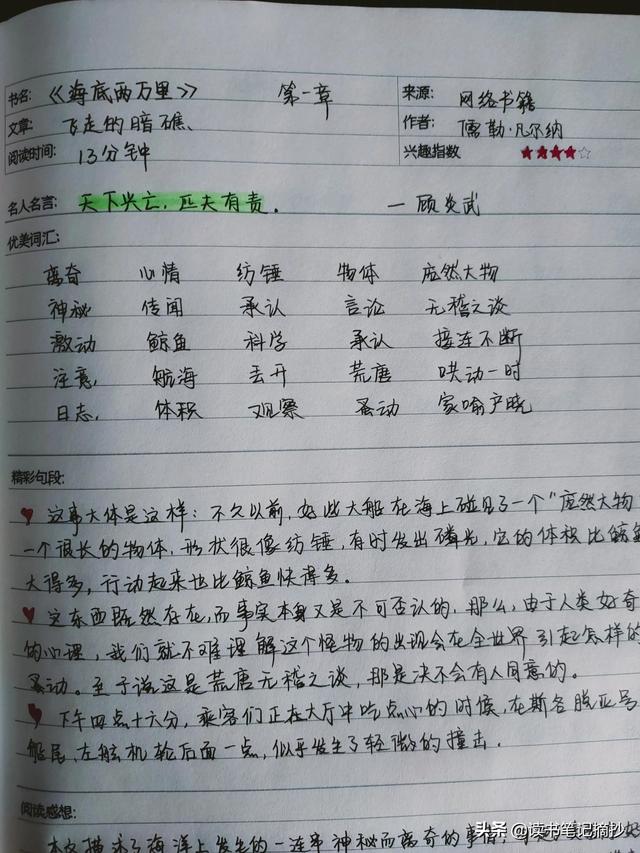 书名: 《海底两万里》 第一章 来源: 网络书籍
文章: 飞走的暗礁、 作者: 儒勒·凡尔纳
阅读时间: 13分钟 兴趣指数 ★★★★☆
名人名言: 天下兴亡,匹夫有责。 — 顾炎武
优美词汇:
离奇 心情 纺锤 物体 庞然大物
神秘 传闻 承认 言论 无稽之谈
激动 鲸鱼 科学 承认 接连不断
注意, 航海 丢开 荒唐 哄动一时
日志, 体积 观察 骚动 家喻户晓
精彩句段:
♥ 这事大体是这样:不久以前,好些大船在海上碰见了一个“庞然大物
一个很长的物体,形状很像纺锤,有时发出磷光,它的体积比鲸
大得多,行动起来也比鲸鱼快得多。
♥ 这东西既然存在,而事实本身又是不可否认的,那么,由于人类好奇
的心理,我们就不难理解这个怪物的出现会在全世界引起怎样的
骚动。至于说这是荒唐无稽之谈,那是决不会有人同意的。
♥ 下午四点十六分,乘客们正在大厅中吃点心的时候,在斯各脱亚号
船尾,左舷机轮后面一点,似乎发生了轻微的撞击.
阅读感想:
本文描述了海洋上发生的一连串神秘而离奇的事情,
头条 @读书笔记摘抄